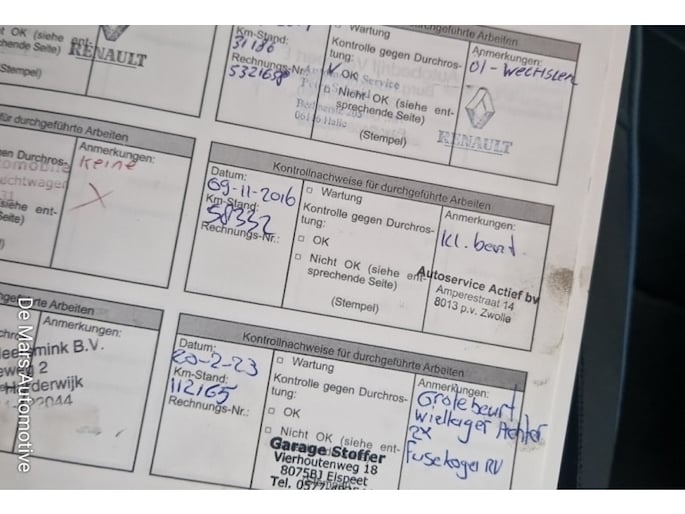 t OK (siehe ent-
chende Seite)
RENAULT
Stempel)
Km-Stand:
31186
Rechnungs-Nr.:
Wartung
Kontrolle gegen Durchros-
tung:
OK
Nicht OK (siehe ent-
sprechende Seite)
(Stempel)
durchgeführte Arbeiten
Anmerkungen:
Öl-Wechseln
Service
06116 Halle
RENAULT
für durchgeführte Arbeiten
en Durchros-
Anmerkungen:
Keine
siehe ent-
Seite)
Kontrollnachweise für durchgeführte Arbeiten
Datum:
09-11-2016
Km-Stand:
58332
Rechnungs-Nr.:
Wartung
Kontrolle gegen Durchros-
tung:
OK
Nicht OK (siehe ent-
sprechende Seite)
(Stempel)
Anmerkungen:
kl. beurt.
Autoservice Actief bv
Amperestraat 14
8013 p.v. Zwolle
geführte Arbeiten
Anmerkungen:
mink B.V.
weg 2
Kontrollnachweise für durchgeführte Arbeiten
Datum:
20-2-23
Km-Stand:
112165
Rechnungs-Nr.:
Wartung
Kontrolle gegen Durchros-
tung:
OK
Nicht OK (siehe ent-
Anmerkungen:
Grote beurt
Wiellager Achter
2x
Fuseekogel RV
Garage Stoffer
Vierhoutenweg 18
8075BJ Elspeet
Tel.
De Mars Automotive